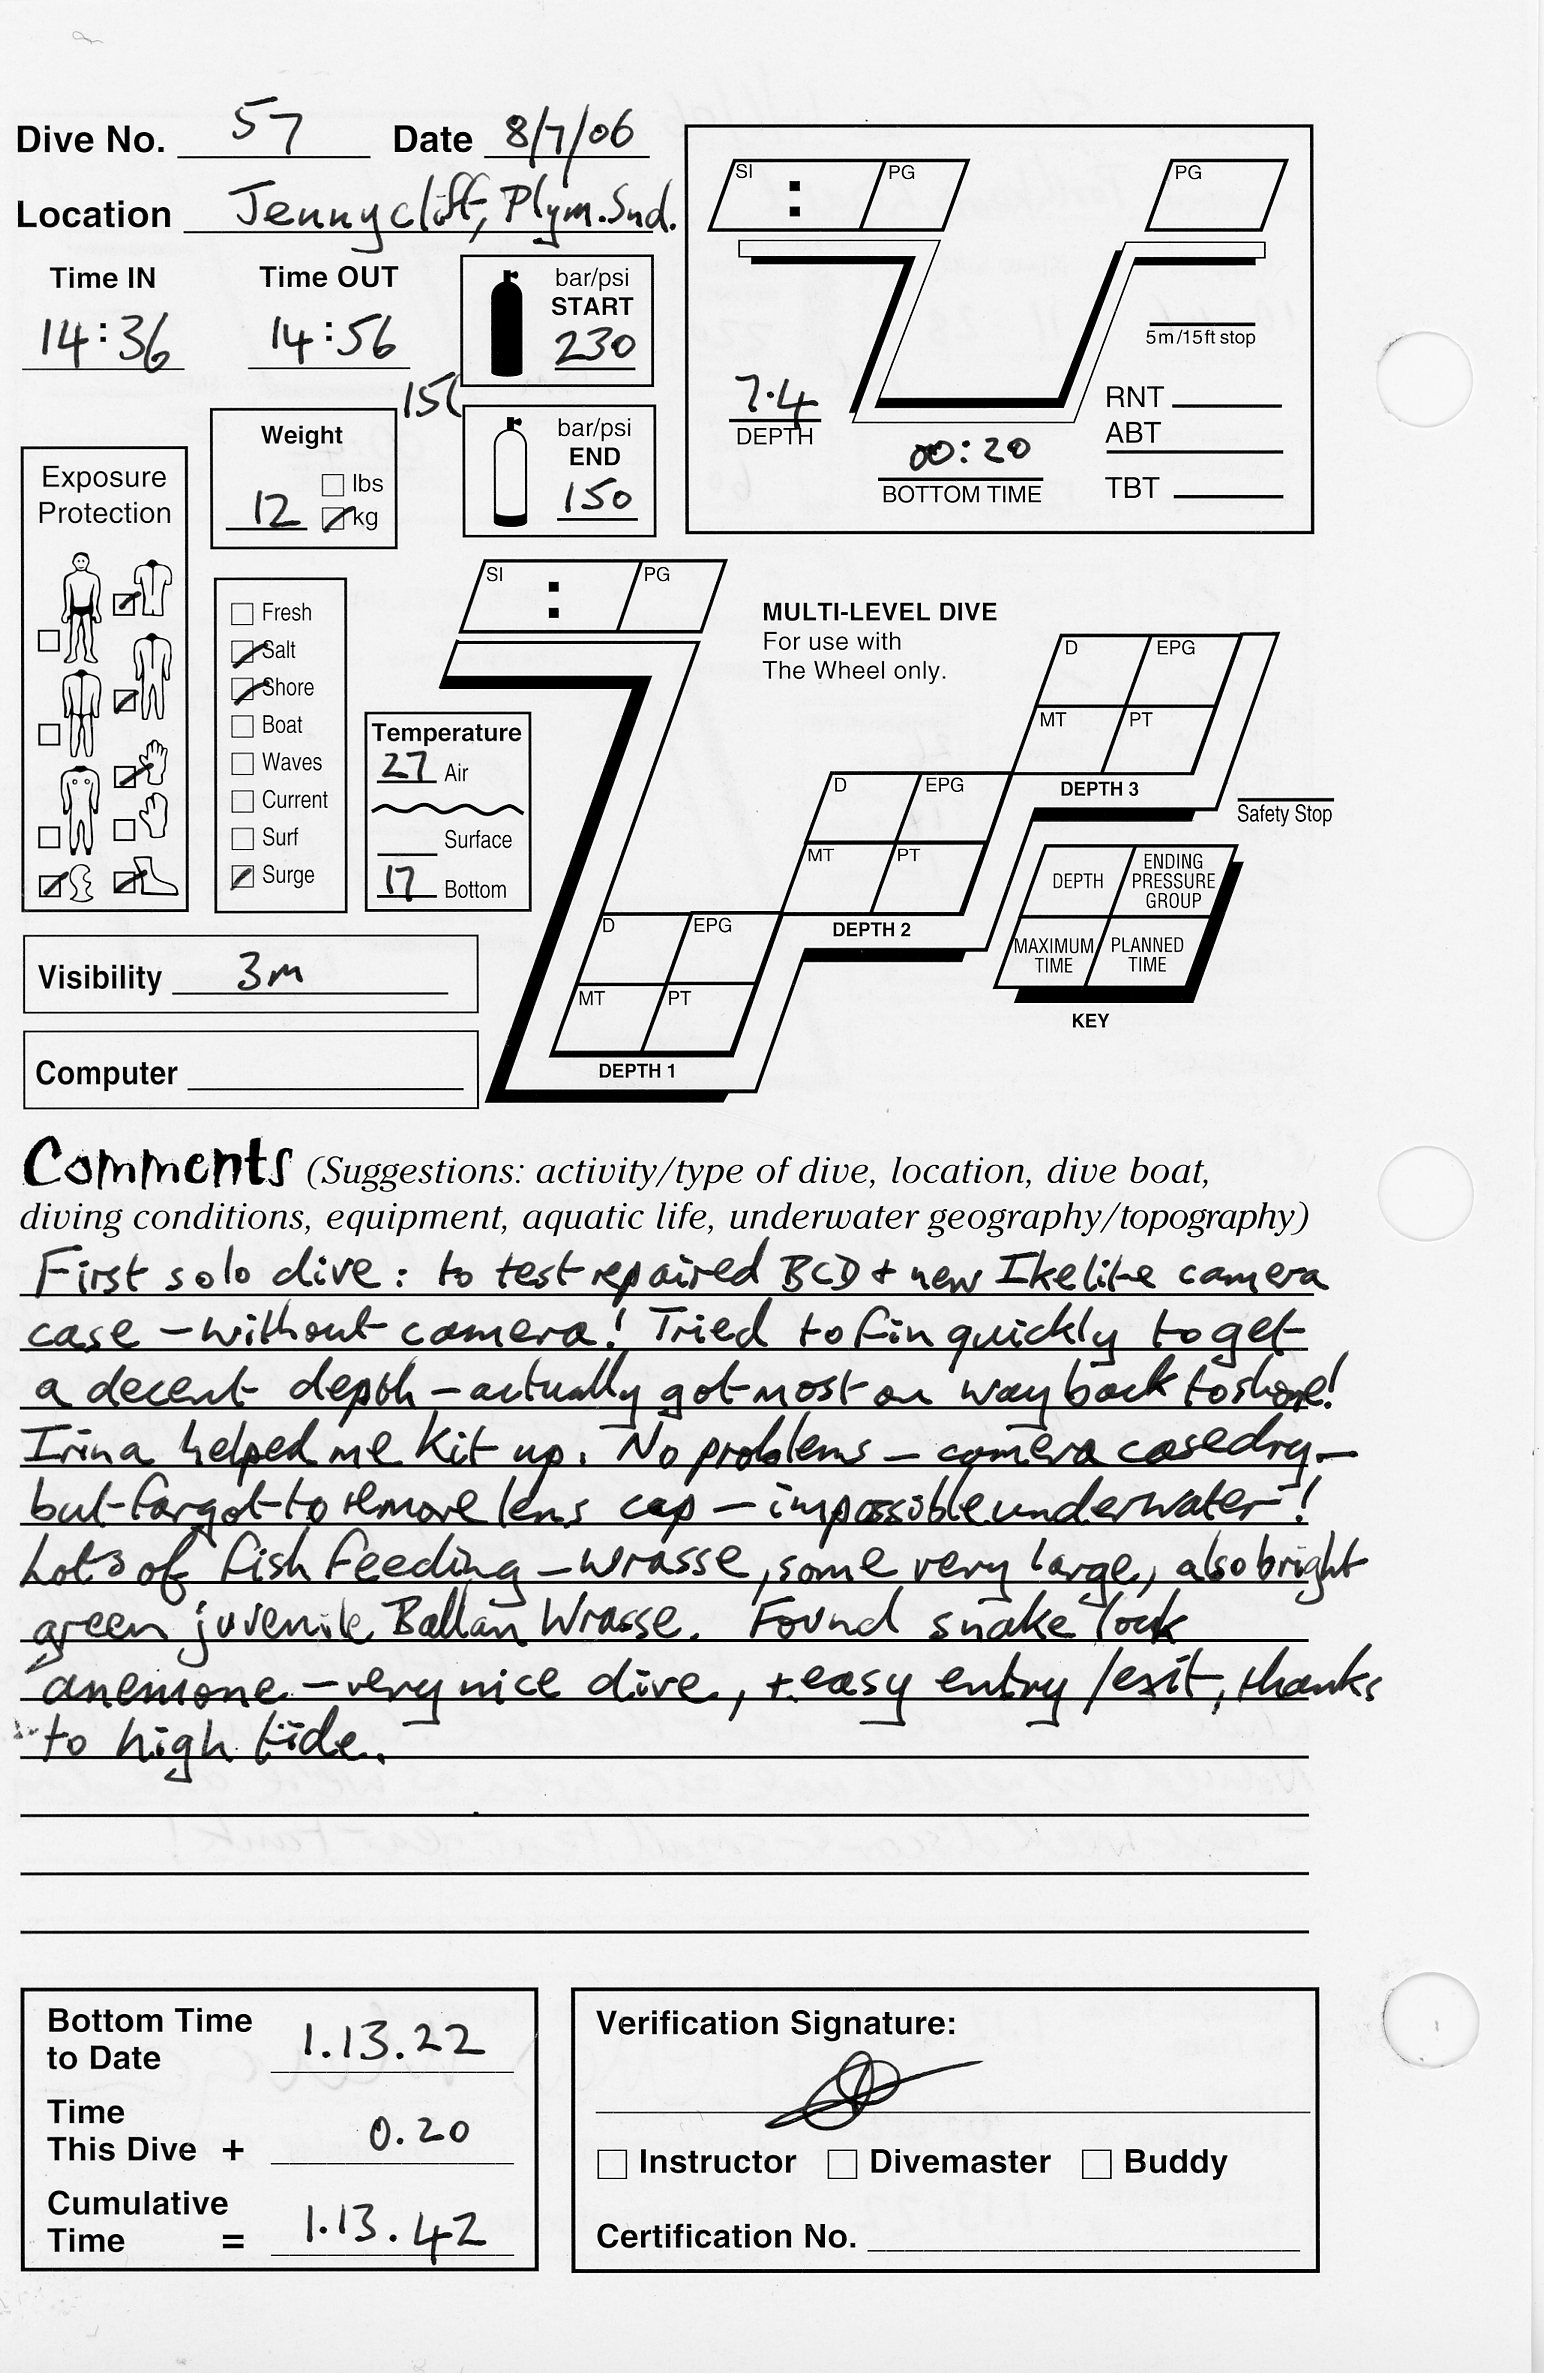 Dive No. 57 Date 8/7/06
Location Jennycliff, Plym. Snd.
Time IN Time OUT
14:36 14:56
bar/psi
START
230
15
bar/psi
END
150
Weight
lbs
12 kg
Exposure
Protection
Fresh
Salt
Shore
Boat
Waves
Current
Surf
Surge
Temperature
27 Air
Surface
17 Bottom
Visibility 3m
Computer
SI : PG
PG
5m/15ft stop
7.4
DEPTH
00:20
BOTTOM TIME
RNT
ABT
TBT
SI : PG
MULTI-LEVEL DIVE
For use with
The Wheel only.
D EPG
MT PT
DEPTH 1
D EPG
MT PT
DEPTH 2
D EPG
MT PT
DEPTH 3
Safety Stop
DEPTH ENDING PRESSURE GROUP
MAXIMUM TIME PLANNED TIME
KEY
Comments (Suggestions: activity/type of dive, location, dive boat,
diving conditions, equipment, aquatic life, underwater geography/topography)
First solo dive: to test repaired BCD + new Ikelite camera
case – without camera! Tried to fin quickly to get
a decent depth – actually got most on way back to shore!
Irina helped me kit up. No problems – camera case dry –
but forgot to remove lens cap – impossible underwater!
Lots of fish feeding – wrasse, some very large, also bright
green juvenile Ballan Wrasse. Found snake lock
anemone – very nice dive, + easy entry/exit, thanks
to high tide.
Bottom Time
to Date 1.13.22
Time
This Dive + 0.20
Cumulative
Time = 1.13.42
Verification Signature:
Instructor Divemaster Buddy
Certification No.